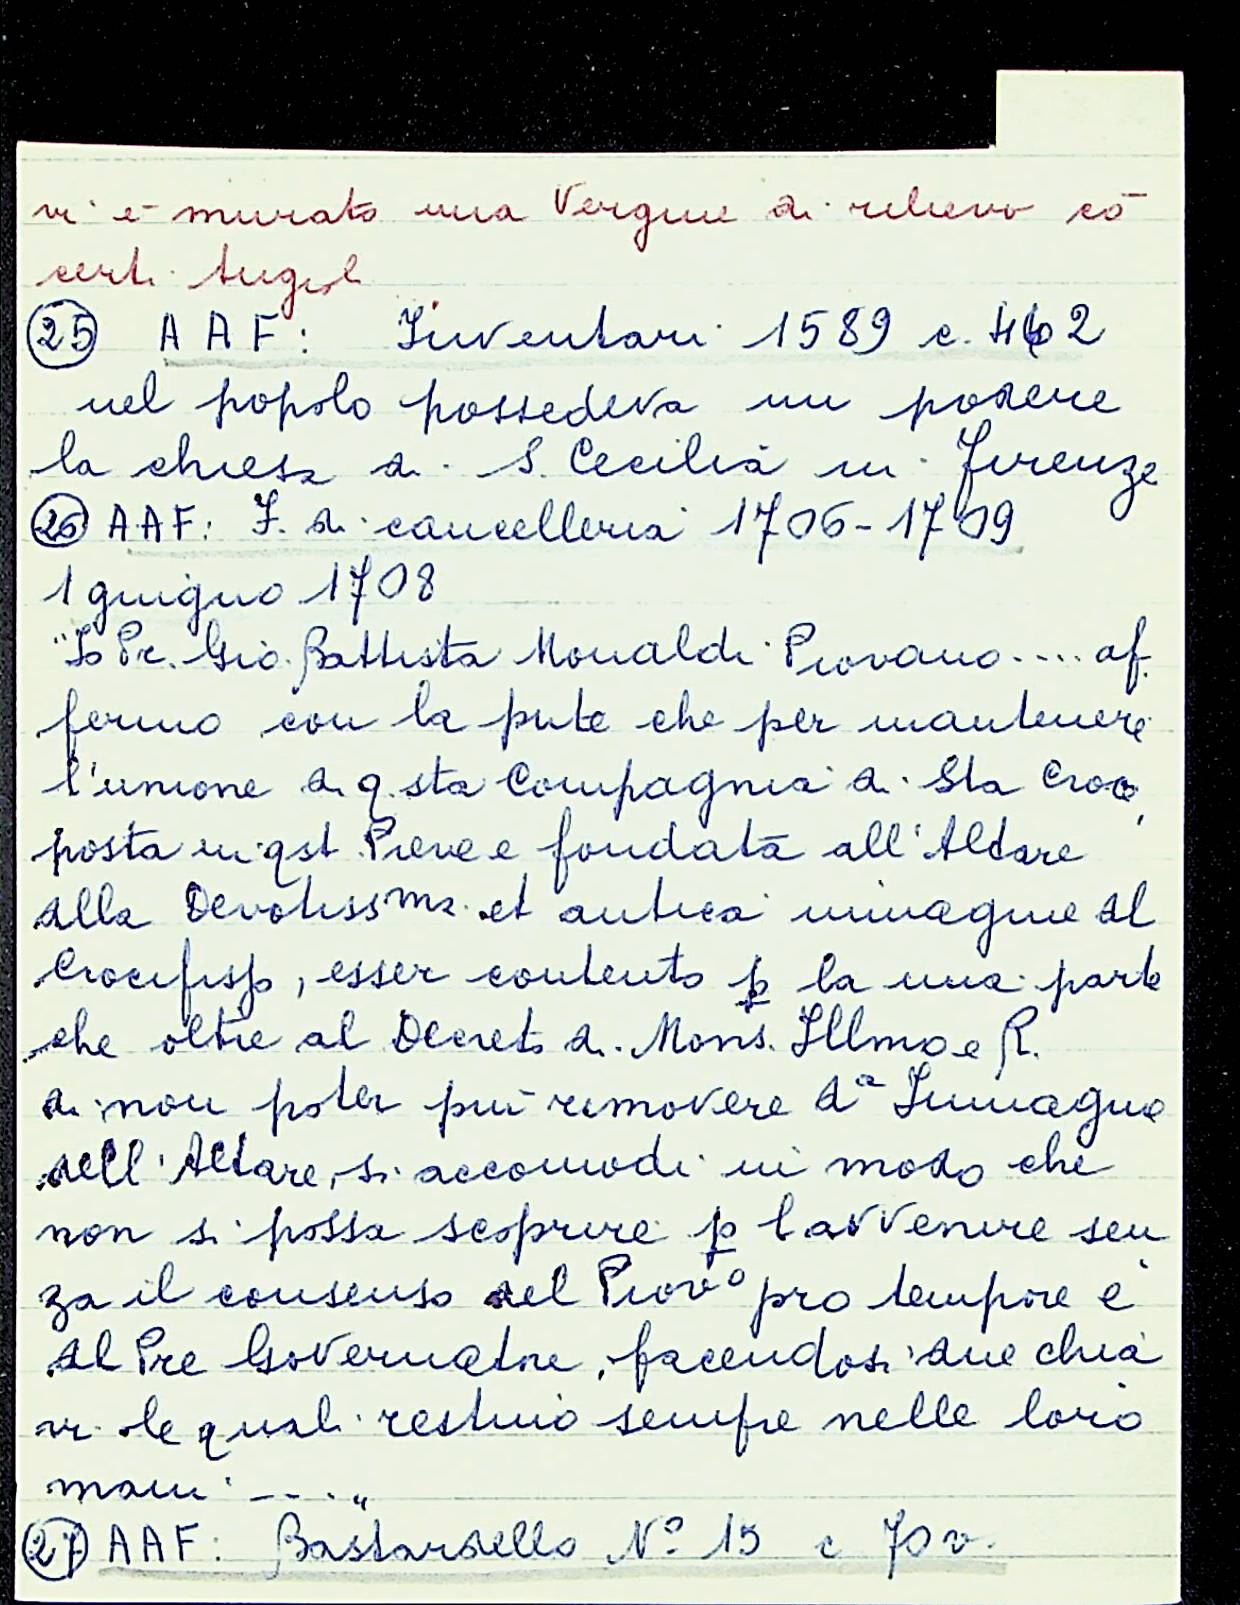 vi è murato una Vergine di rilievo cō
certi Angioli
25 AAF: Inventari 1589 c. 462
nel popolo possedeva un podere
la chiesa di S. Cecilia in Firenze
26 AAF: F. di cancelleria 1706-1709
1 giugno 1708
"Io Pr. Gio. Battista Monaldi Piovano.... af
fermo con la pnte che per mantenere
l'unione di q.sta Compagnia di Sta Croce,
posta in qst Pieve e fondata all'Altare
dlla Devotissma et antica immagine dl
Crocifisso, esser contento p la una parte
che oltre al Decreto di Mons. Illmo e R.
di non poter più rimovere da Immagine
dell'Altare, si accomodi in modo che
non si possa scoprire p l'avvenire sen
za il consenso del Piovo pro tempore e
dl Pre Governatore, facendosi due chia
vi le quali restino sempre nelle loro
mani ...."
27 AAF: Bastardello No 15 c 70 v.